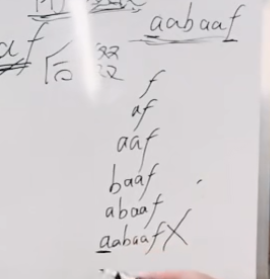 aabaaf
af
后缀
f
af
aaf
baaf
abaaf
aabaafX